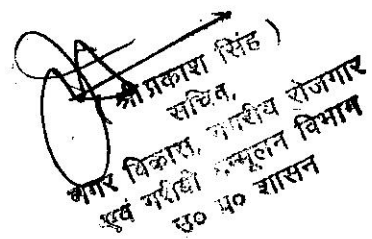 ( श्रीप्रकाश सिंह )
सचिव,
नगर विकास, नगरीय रोजगार
एवं गरीबी उन्मूलन विभाग
उ० प्र० शासन